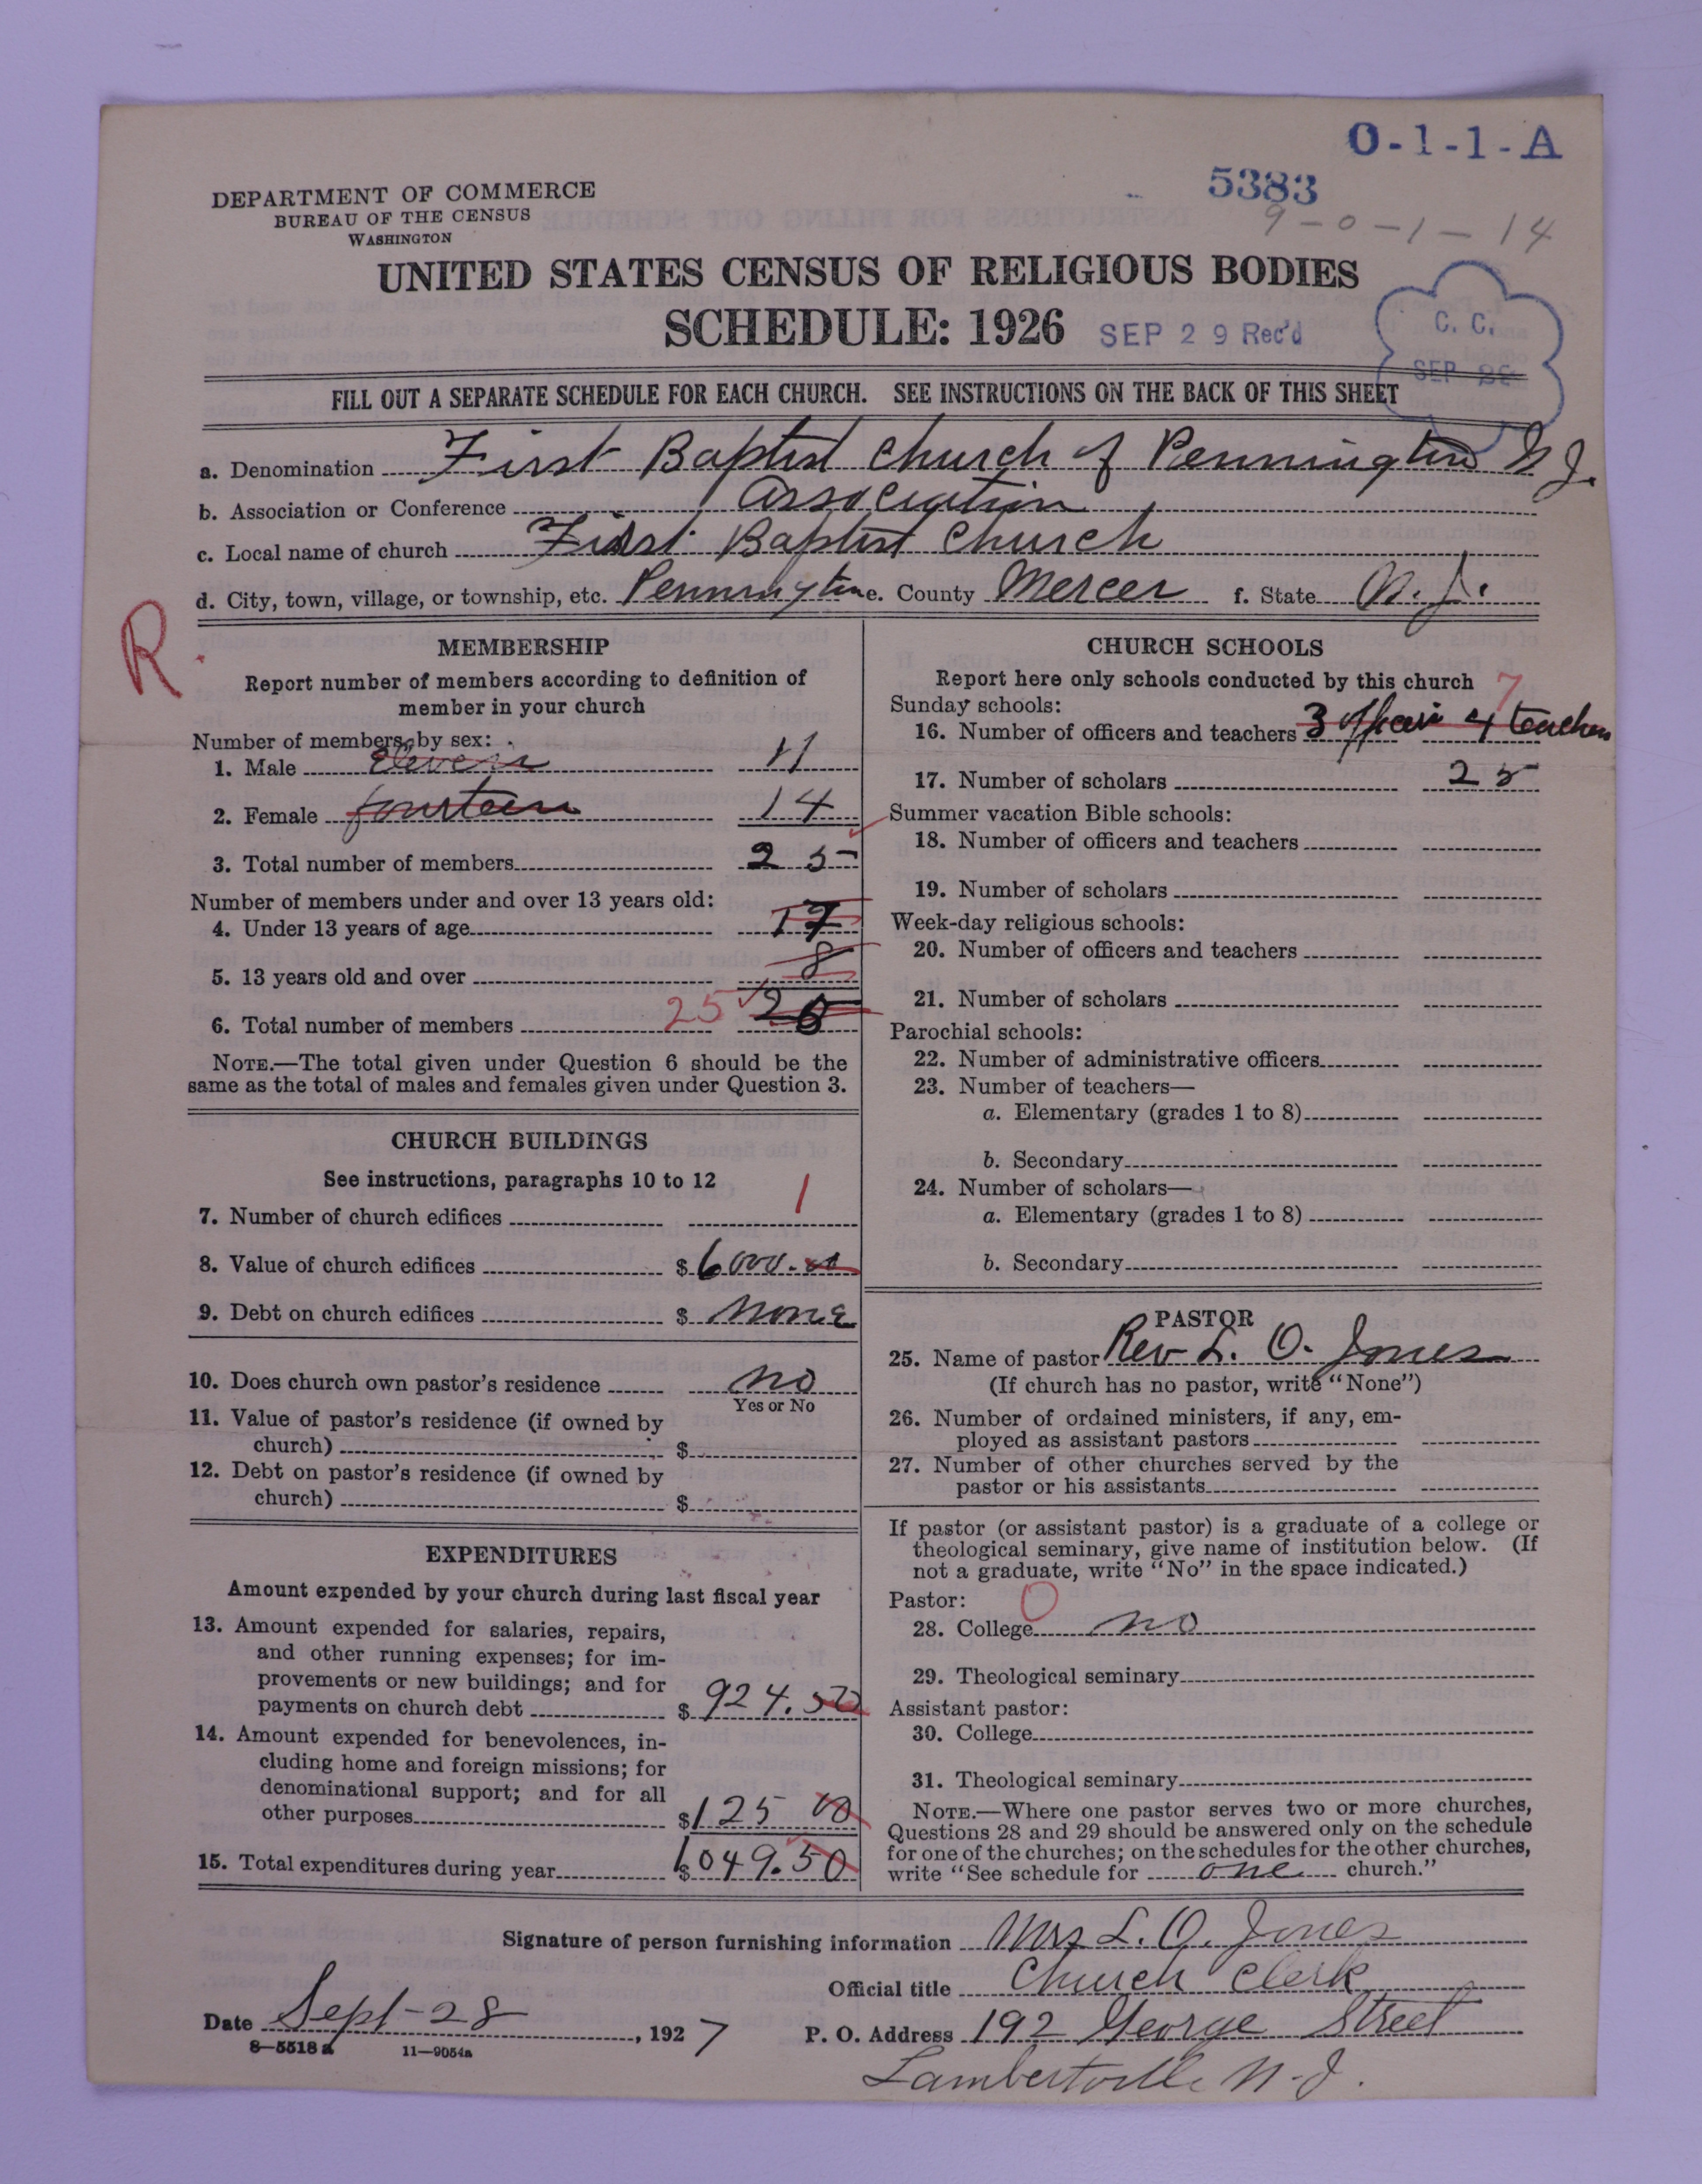 O-1-1-A
5383
9-0-1-14
DEPARTMENT OF COMMERCE
BUREAU OF THE CENSUS
WASHINGTON
UNITED STATES CENSUS OF RELIGIOUS BODIES
SCHEDULE: 1926
SEP 29 Rec'd
C. C.
SEP
FILL OUT A SEPARATE SCHEDULE FOR EACH CHURCH. SEE INSTRUCTIONS ON THE BACK OF THIS SHEET
a. Denomination First Baptist Church of Pennington N J.
b. Association or Conference Association
c. Local name of church First Baptist Church
d. City, town, village, or township, etc. Pennington e. County Mercer f. State N. J.
R.
MEMBERSHIP
Report number of members according to definition of
member in your church
Number of members, by sex:
1. Male Eleven 11
2. Female fourteen 14
3. Total number of members 25
Number of members under and over 13 years old:
4. Under 13 years of age 17
5. 13 years old and over 8
6. Total number of members 25
NOTE.—The total given under Question 6 should be the
same as the total of males and females given under Question 3.
CHURCH BUILDINGS
See instructions, paragraphs 10 to 12
7. Number of church edifices 1
8. Value of church edifices $ 6000.00
9. Debt on church edifices $ None
10. Does church own pastor's residence no
Yes or No
11. Value of pastor's residence (if owned by
church) $
12. Debt on pastor's residence (if owned by
church) $
EXPENDITURES
Amount expended by your church during last fiscal year
13. Amount expended for salaries, repairs,
and other running expenses; for im-
provements or new buildings; and for
payments on church debt $ 924.50
14. Amount expended for benevolences, in-
cluding home and foreign missions; for
denominational support; and for all
other purposes $ 125 00
15. Total expenditures during year $ 1049.50
CHURCH SCHOOLS
Report here only schools conducted by this church
7
Sunday schools:
16. Number of officers and teachers 3 officers 4 teachers
17. Number of scholars 25
Summer vacation Bible schools:
18. Number of officers and teachers
19. Number of scholars
Week-day religious schools:
20. Number of officers and teachers
21. Number of scholars
Parochial schools:
22. Number of administrative officers
23. Number of teachers—
a. Elementary (grades 1 to 8)
b. Secondary
24. Number of scholars—
a. Elementary (grades 1 to 8)
b. Secondary
PASTOR
25. Name of pastor Rev L. O. Jones
(If church has no pastor, write "None")
26. Number of ordained ministers, if any, em-
ployed as assistant pastors
27. Number of other churches served by the
pastor or his assistants
If pastor (or assistant pastor) is a graduate of a college or
theological seminary, give name of institution below. (If
not a graduate, write "No" in the space indicated.)
Pastor: 0
28. College no
29. Theological seminary
Assistant pastor:
30. College
31. Theological seminary
NOTE.—Where one pastor serves two or more churches,
Questions 28 and 29 should be answered only on the schedule
for one of the churches; on the schedules for the other churches,
write "See schedule for one church."
Signature of person furnishing information Mrs L. O. Jones
Official title Church Clerk
Date Sept-28, 1927
P. O. Address 192 George Street
8—5518a 11—9054a
Lambertville N-J.